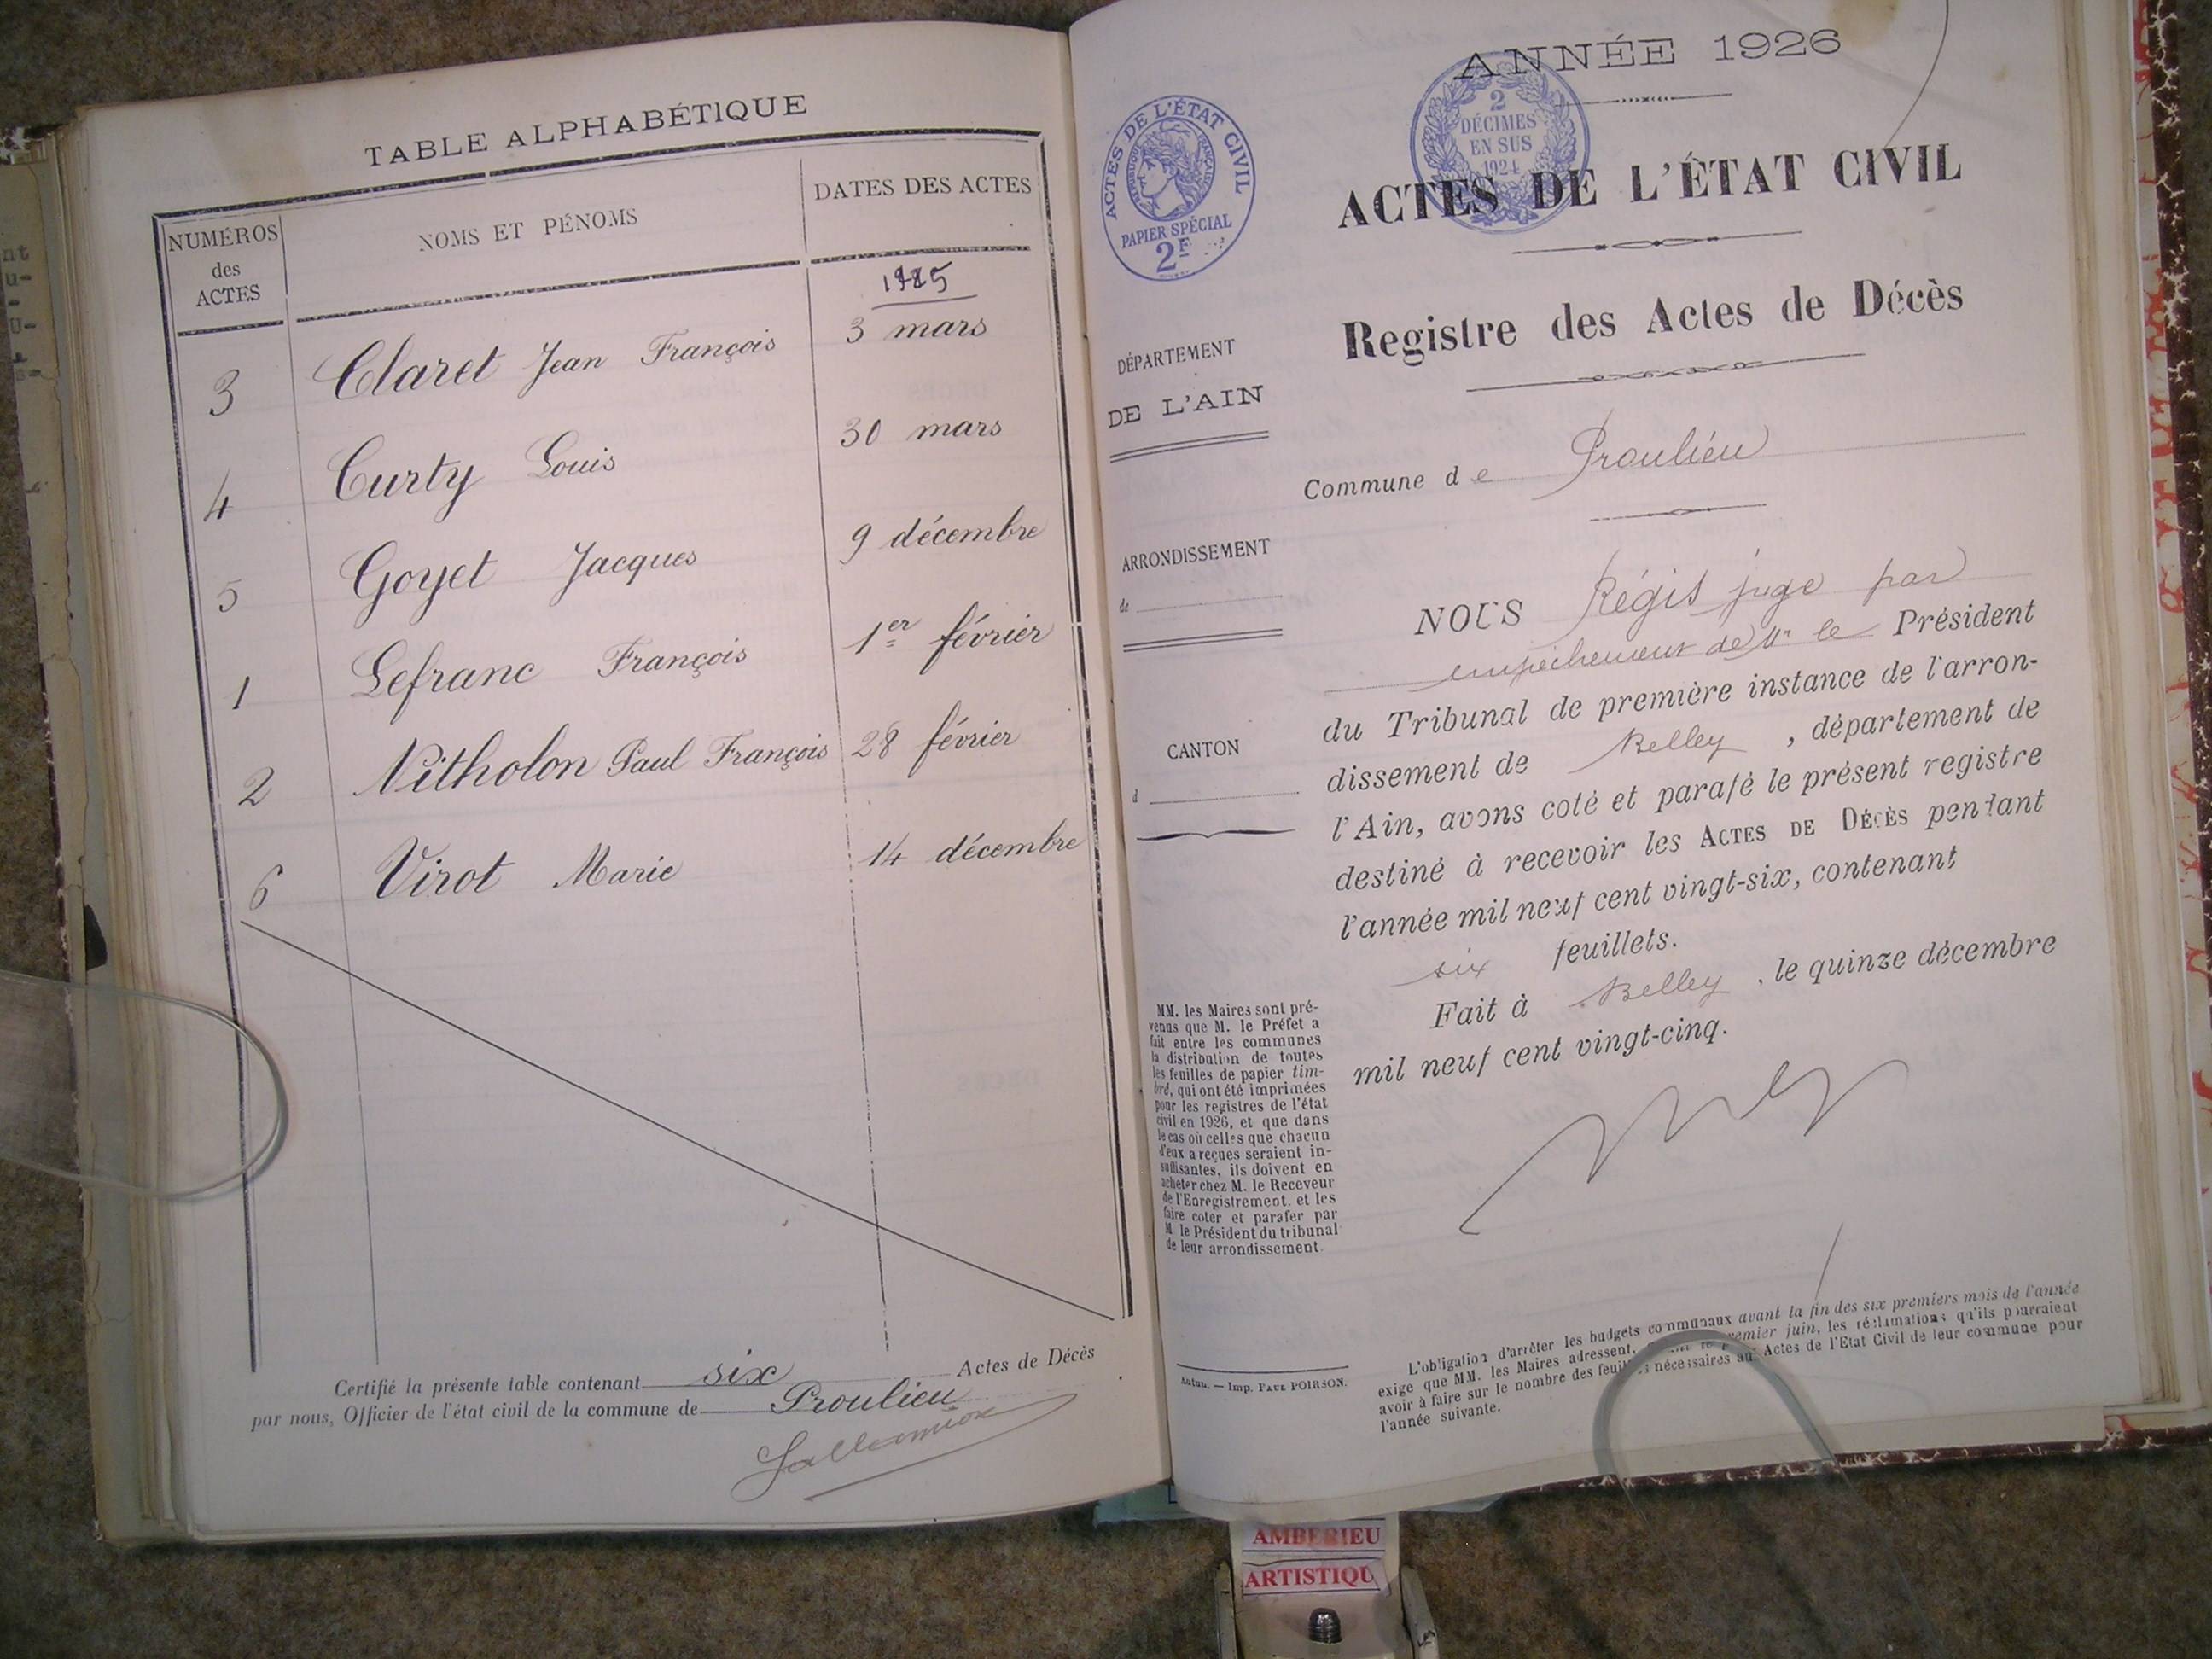 TABLE ALPHABÉTIQUE
NUMÉROS
des
ACTES
NOMS ET PÉNOMS
DATES DES ACTES
1925
3 Claret Jean François 3 mars
4 Curty Louis 30 mars
5 Goyet Jacques 9 décembre
1 Lefranc François 1er février
2 Nitholon Paul François 28 février
6 Virot Marie 14 décembre
Certifié la présente table contenant six Actes de Décès
par nous, Officier de l'état civil de la commune de Proulieu
ANNÉE 1926
ACTES DE L'ÉTAT CIVIL
RÉPUBLIQUE FRANÇAISE
PAPIER SPÉCIAL
2F
2
DÉCIMES
EN SUS
1924
ACTES DE L'ÉTAT CIVIL
Registre des Actes de Décès
DÉPARTEMENT
DE L'AIN
Commune de Proulieu
ARRONDISSEMENT
de
CANTON
d
NOUS Régis juge par
empêchement de Mr le Président
du Tribunal de première instance de l'arron-
dissement de Belley, département de
l'Ain, avons coté et parafé le présent registre
destiné à recevoir les ACTES DE DÉCÈS pendant
l'année mil neuf cent vingt-six, contenant
six feuillets.
Fait à Belley, le quinze décembre
mil neuf cent vingt-cinq.
MM. les Maires sont pré-
venus que M. le Préfet a
fait entre les communes
la distribution de toutes
les feuilles de papier tim-
bré, qui ont été imprimées
pour les registres de l'état
civil en 1926, et que dans
le cas où celles que chacun
d'eux a reçues seraient in-
suffisantes, ils doivent en
acheter chez M. le Receveur
de l'Enregistrement. et les
faire coter et parafer par
M. le Président du tribunal
de leur arrondissement.
Autun. — Imp. PAUL POIRSON.
L'obligation d'arrêter les budgets communaux avant la fin des six premiers mois de l'année
exige que MM. les Maires adressent, premier juin, les réclamations qu'ils pourraient
avoir à faire sur le nombre des feuilles nécessaires aux Actes de l'Etat Civil de leur commune pour
l'année suivante.
AMBERIEU
ARTISTIQU